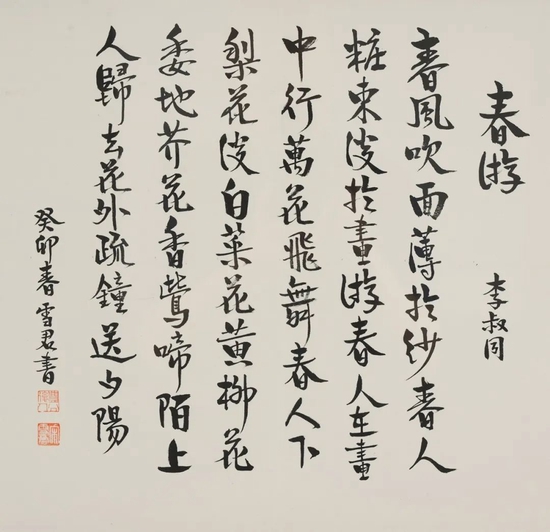 春游
李叔同
春風吹面薄於紗春人
粧束淡於畫游春人在畫
中行萬花飛舞春人下
梨花淡白菜花黃柳花
委地芥花香鶯啼陌上
人歸去花外疏鐘送夕陽
癸卯春雪君書